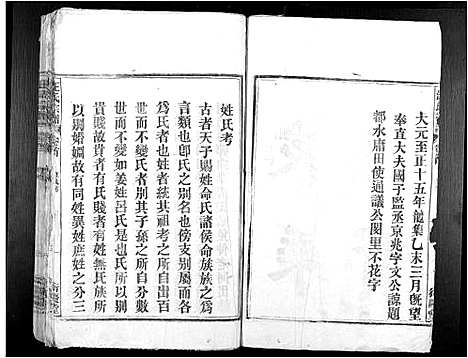 大元至正十五年龍集乙未三月旣望
奉直大夫國子監丞京兆字文公諒題
都水庸田使通議公閱里不花字
姓氏考
古者天子賜姓命氏諸侯命族族之爲
言類也卽氏之别名也傍支别屬而各
爲氏者别其子孫之所自出百
世而不變如姜姓呂氏是也氏所以别
貴賤故貴者有氏賤者有姓無氏族
以别婚姻故有同姓異姓庶姓之分三